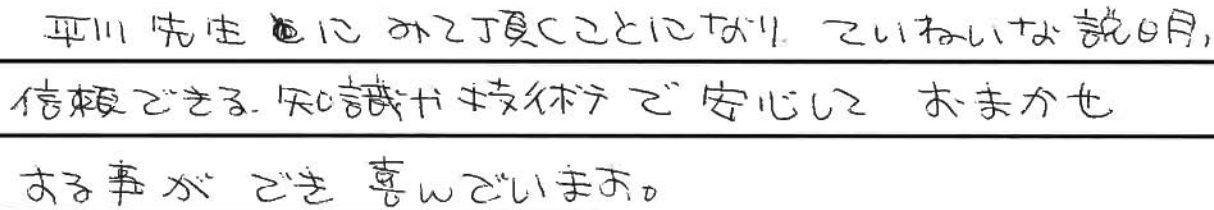 平川先生にみて頂くことになり、ていねいな説明、
信頼できる知識や技術で安心しておまかせ
する事ができ喜んでいます。